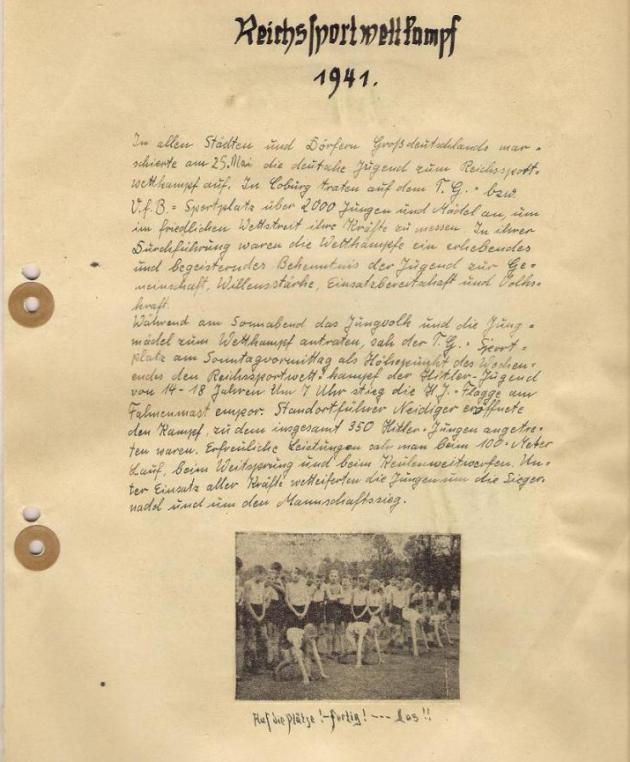 Reichssportwettkampf
1941.
In allen Städten und Dörfern Großdeutschlands mar-
schierte am 25. Mai die deutsche Jugend zum Reichssport-
wettkampf auf. In Coburg traten auf dem T.G.- bzw.
V.f.B.- Sportplatz über 2000 Jungen und Mädel an, um
im friedlichen Wettstreit ihre Kräfte zu messen. In ihrer
Durchführung waren die Wettkämpfe ein erhebendes
und begeisterndes Bekenntnis der Jugend zur Ge-
meinschaft, Willensstärke, Einsatzbereitschaft und Volks-
kraft.
Während am Sonnabend das Jungvolk und die Jung-
mädel zum Wettkampf antraten, sah der T.G.- Sport-
platz am Sonntagvormittag als Höhepunkt des Wochen-
endes den Reichssportwett-kampf der Hitler-Jugend
von 14-18 Jahren Um 7 Uhr stieg die H.J.-Flagge am
Fahnenmast empor. Standortführer Neidiger eröffnete
den Kampf, zu dem insgesamt 350 Hitler-Jungen angetre-
ten waren. Erfreuliche Leistungen sah man beim 100-Meter
Lauf, beim Weitsprung und beim Keulenweitwerfen. Un-
ter Einsatz aller Kräfte wetteiferten die Jungen um die Sieger-
nadel und um den Mannschaftssieg.
Auf die Plätze!-fertig!--- los!!